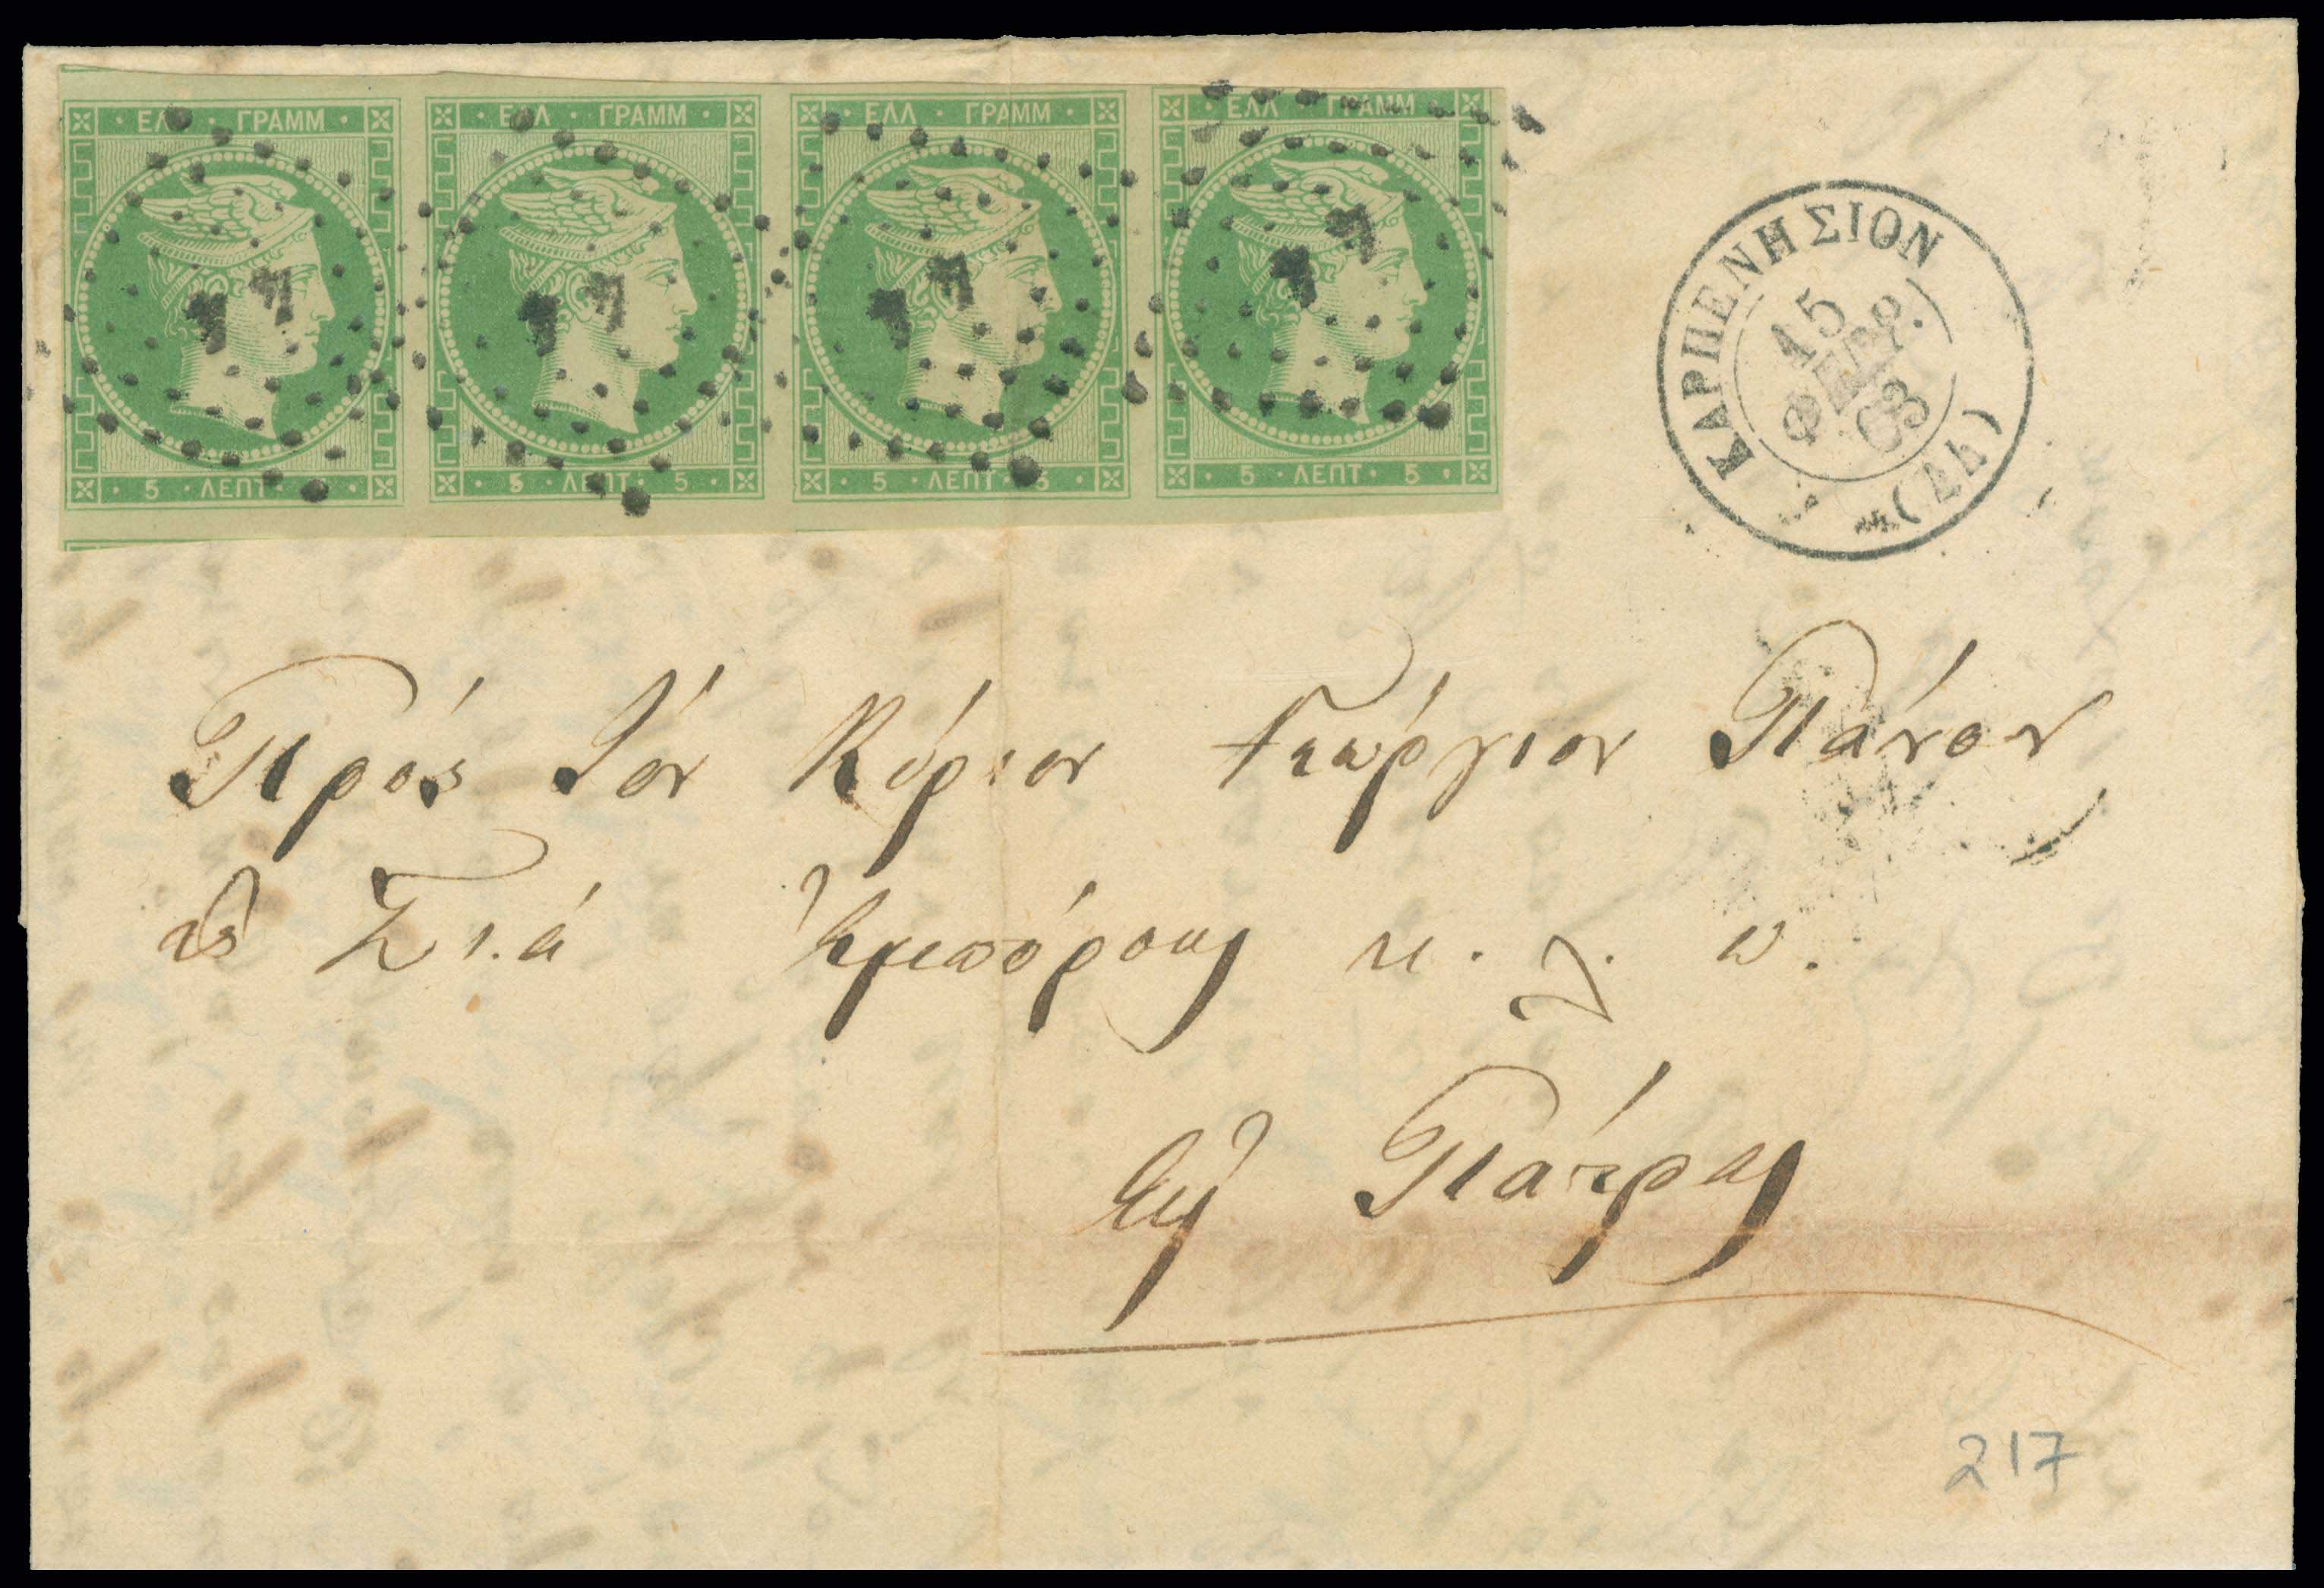 ΕΛΛ · ΓΡΑΜΜ · ΕΛΛ · ΓΡΑΜΜ · ΕΛΛ · ΓΡΑΜΜ · ΕΛΛ · ΓΡΑΜΜ
5 · ΛΕΠΤ · 5 · ΛΕΠΤ · 5 · 5 · ΛΕΠΤ · 5 · 5 · ΛΕΠΤ · 5
ΚΑΡΠΕΝΗΣΙΟΝ
15
ΦΕΒΡ.
63
(44)
Πρός Τόν Κύριον Γεώργιον Πάνον
& Σιά Ἐμπόρους κ. λ. π.
Εἰς Πάτρας
217